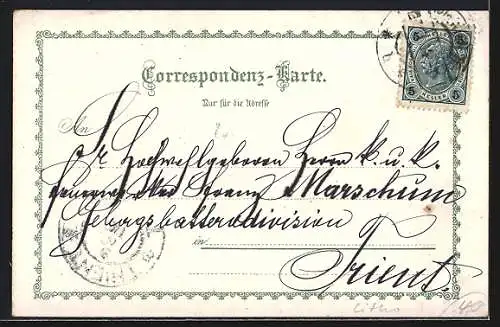 Correspondenz-Karte.
Nur für die Adresse
An
Sr Hochwohlgeboren Herrn k. u. k.
Franz Marschun
Gebirgsbatteriedivision
in
Trient.
5 5
HELLER
Litho